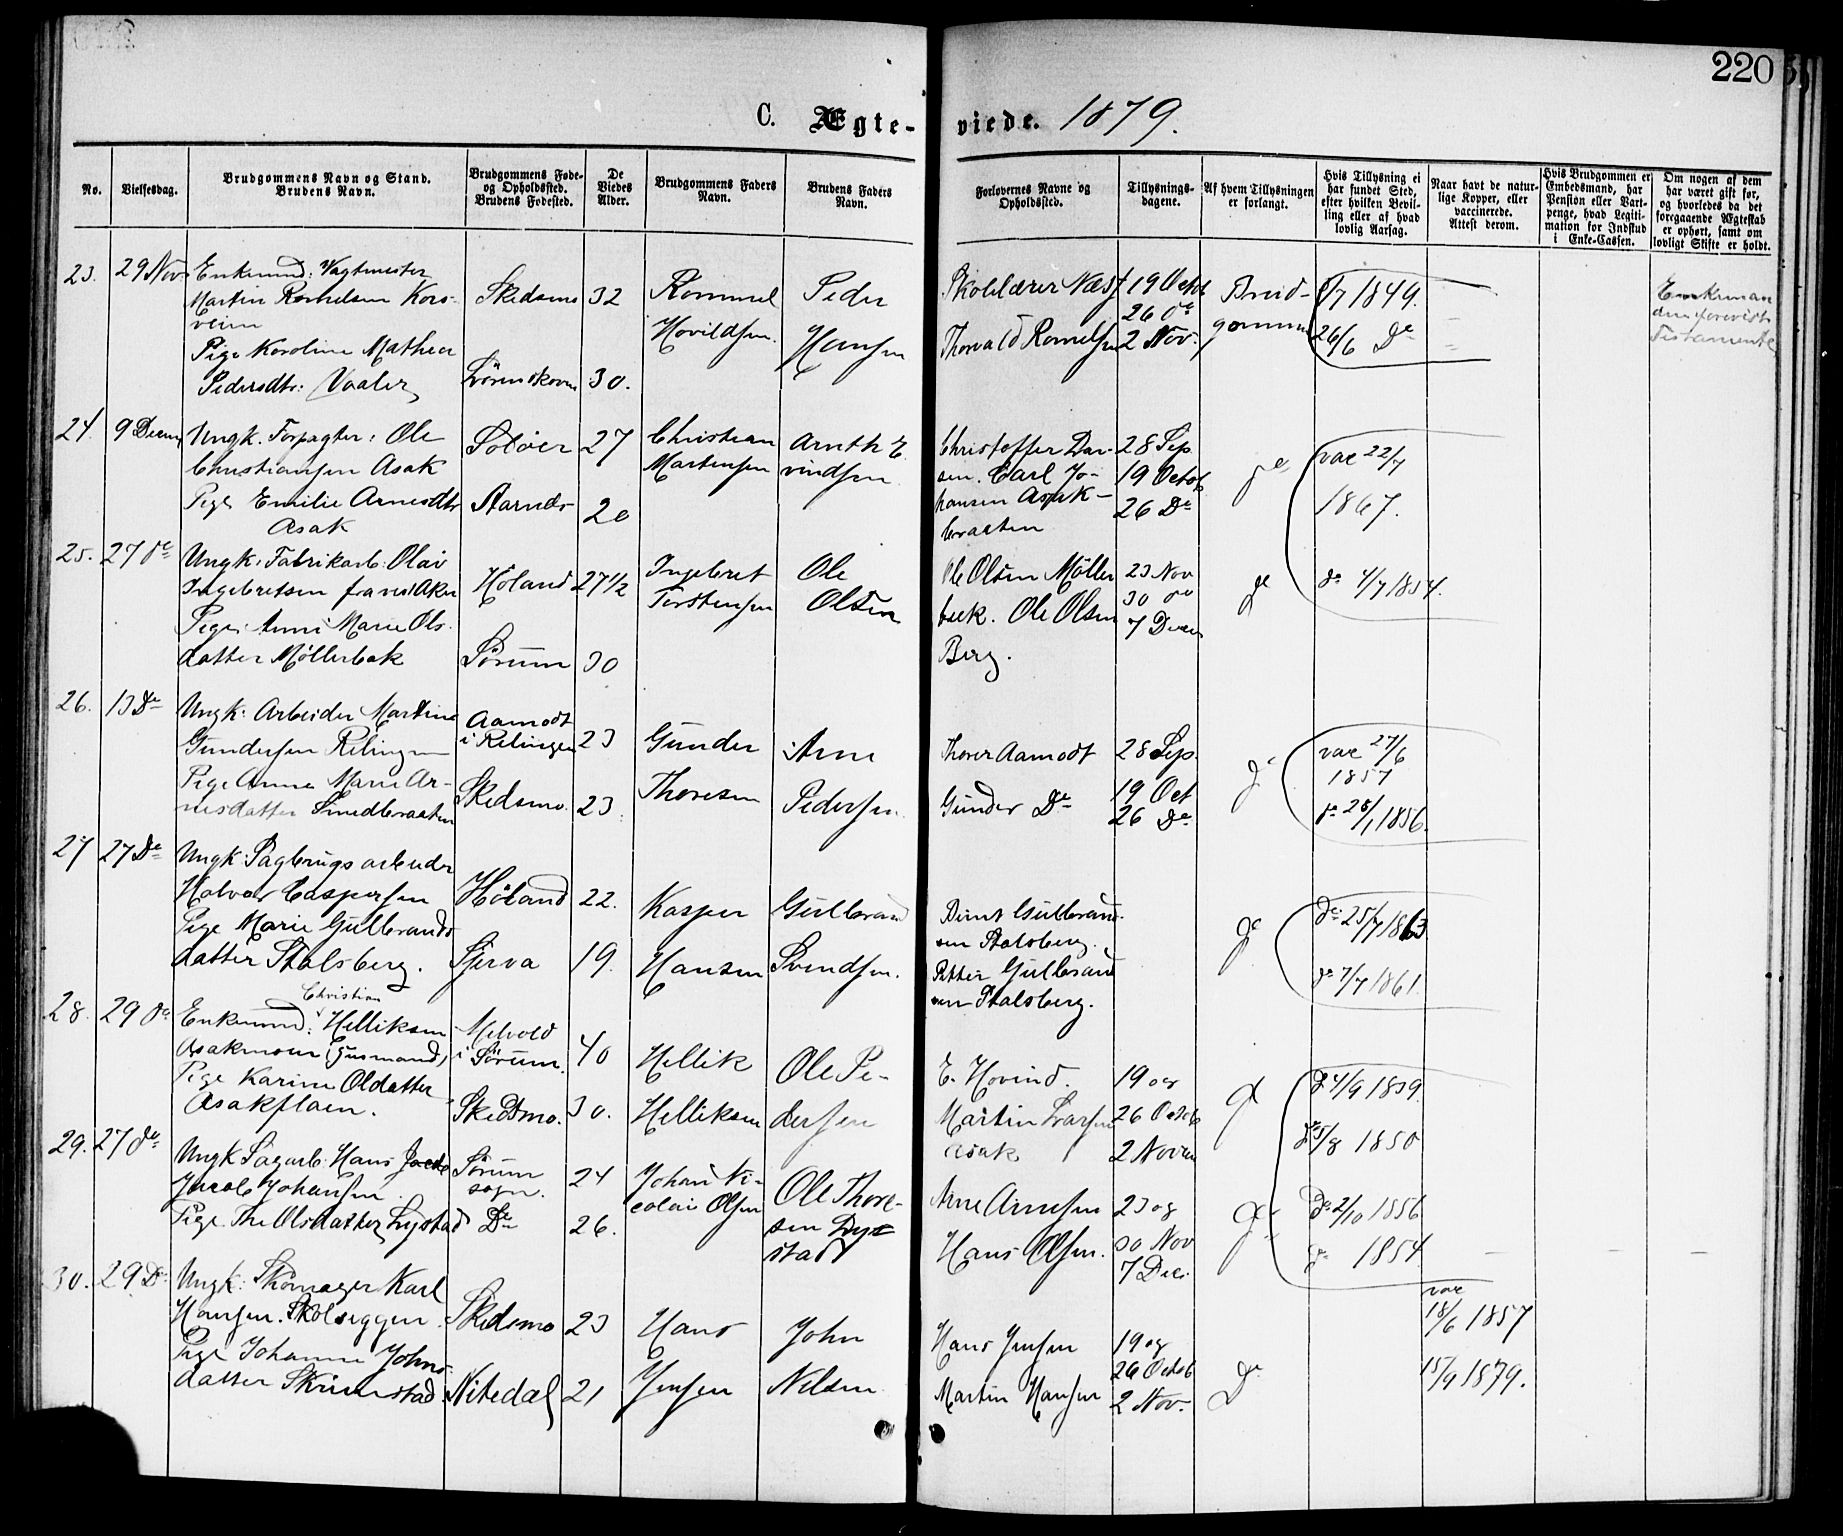 220
C. Ægte-
viede. 1879.
No.
Vielsesdag.
Brudgommens Navn og Stand.
Brudens Navn.
Brudgommens Føde-
og Opholdssted.
Brudens Fødested.
De
Viedes
Alder.
Brudgommens Faders
Navn.
Brudens Faders
Navn.
Forlovernes Navne og
Opholdssted.
Tillysnings-
dagene.
Af hvem Tillysningen
er forlangt.
Hvis Tillysning ei
har fundet Sted,
efter hvilken Bevil-
ling eller af hvad
lovlig Aarsag.
Naar havt de natur-
lige Kopper, eller
vaccinerede.
Attest derom.
Hvis Brudgommen er
Embedsmand, har
Pension eller Vart-
penge, hvad Legiti-
mation for Indskud
i Enke-Cassen.
Om nogen af dem
har været gift før,
og hvorledes da det
foregaaende Ægteskab
er ophørt, samt om
lovligt Skifte er holdt.
23. 29 Nov
Enkemand: Vagtmester
Martin Romelsen Kors-
veien
Pige Karoline Mathea
Pedersdtr: Vaaler
Skedsmo 32
Lørenskoven 30.
Rommel
Hovildsen.
Peder
Hansen
Skolelærer Næss
Thorvald Romelsen
19 Octob
26 de
2 Nov.
Brud-
gommen
/7 1849.
26/6 De
Enkeman
den foreviste
Testamente
24. 9 Decem
Ungk. Forpagter: Ole
Christiansen Asak
Pige Emilie Arnesdtr
Asak
Soløer 27
Aarnæs 20
Christian
Martensen
Arnth E
vindsen
Christoffer Lar-
sen. Carl Jo-
hansen Asak-
braaten
28 Sep.
19 Octob
26 De
de
vac 22/7
1867.
25. 27 de
Ungk. Fabrikarb. Olai
Ingebretsen fra vest Aker
Pige: Anne Marie Ols-
datter Møllerbæk
Høland 27 1/2
Sørum 30
Ingebret
Torstensen
Ole
Olsen
Ole Olsen Møller
bæk. Ole Olsen
Berg.
23 Nov
30 do
7 Decem
de
de 4/7 1854.
26. 13 De
Ungk: Arbeider Martin
Gundersen Relingen
Pige Anne Marie Ar-
nesdatter Smedbraaten
Aamodt
i Relingen 23
Skedsmo. 23.
Gunder
Thoresen
Arne
Pedersen.
Thorer Aamodt
Gunder De
28 Sep.
19 Oct
26 De
de
vac 27/6
1857
de 28/1 1856.
27 27 De
Ungk. Sagbrugsarbeider
Halvor Caspersen
Pige Marie Gulbrands
datter Stalsberg.
Høland 22.
19.
Kasper
Hansen
Gulbrand
Svendsen.
Bernt Gulbrand-
sen Stalsberg.
Petter Gulbrand
sen Stalsberg.
de
de 25/7 1863
de 7/7 1861.
28. 29 de
Christian
Enkemand: Helliksen
Asakmoen (Gusmand)
Pige Karine Oldatter
Asakflaen.
Melvold
i Sørum. 40
Skedsmo. 30.
Hellik
Helliksen
Ole Pe-
dersen
E. Hovind.
Martin Larsen
Asak
19 og
26 Octob
2 Novem
de
de 4/9 1839.
de 5/8 1850
29. 27 de
Ungk Sagarb: Hans
Jacob Johansen.
Pige Thea Olsdatter Lystad
Sørum
sogn. 24
De 26.
Johan Ni-
colai Olsen
Ole Thore-
sen Lys-
stad
Arne Arnesen
Hans Olsen.
23 og
30 Nov
7 Dec.
de
de 2/10 1856
de 1854
30. 29 D
Ungk: Skomager Karl
Hansen. Skolseggen
Pige Johanne Johns-
datter Skrimstad.
Skedsmo 23
Nitedal 21
Hans
Jensen
John
Nilsen
Hans Jensen
Martin Hansen
19 og
26 Octob
2 Nov.
De
vac
18/6 1857
15/9 1879.